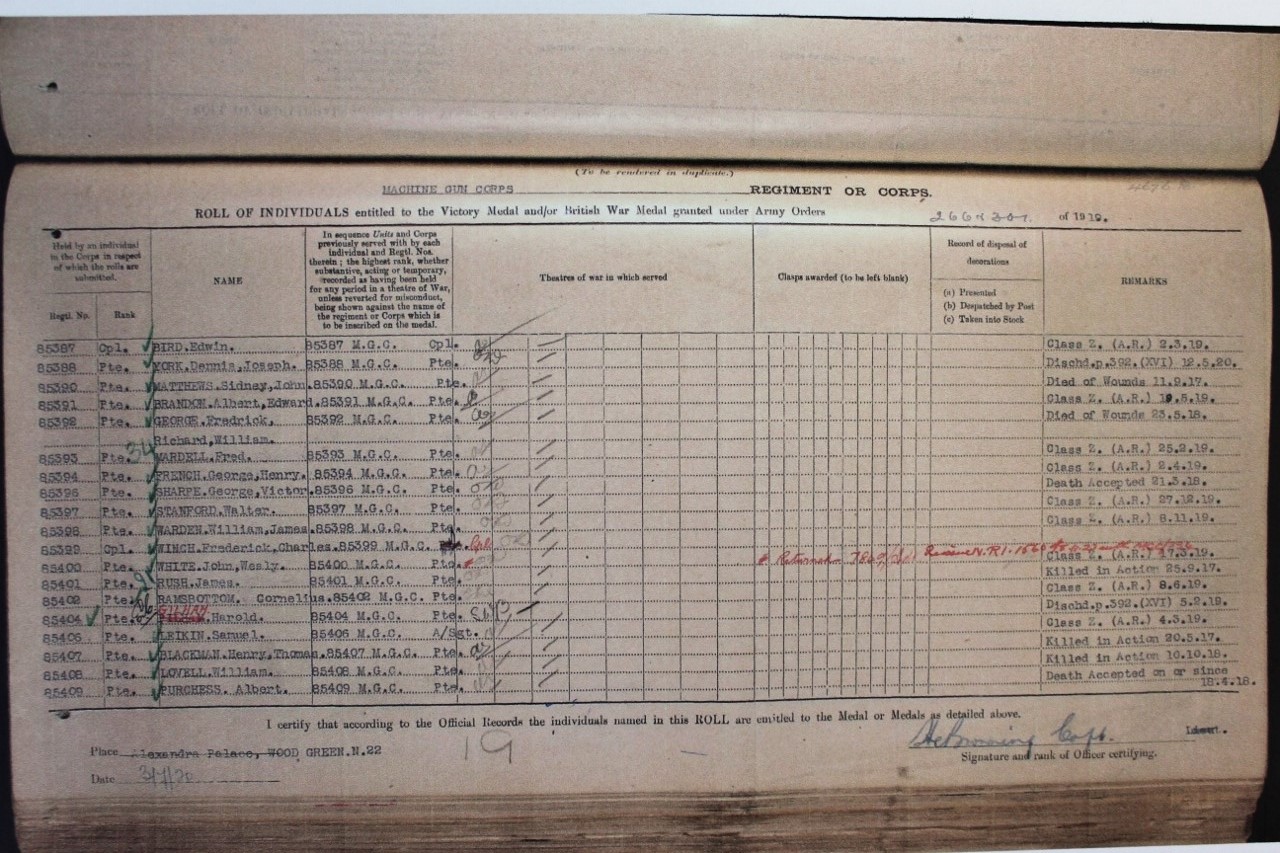 (To be rendered in duplicate.)
MACHINE GUN CORPS REGIMENT OR CORPS.
ROLL OF INDIVIDUALS entitled to the Victory Medal and/or British War Medal granted under Army Orders 266 & 301. of 1919.
Held by an individual in the Corps in respect of which the rolls are submitted.
Regtl. No. Rank
NAME
In sequence Units and Corps previously served with by each individual and Regtl. Nos. therein; the highest rank, whether substantive, acting or temporary, recorded as having been held for any period in a theatre of War, unless reverted for misconduct, being shown against the name of the regiment or Corps which is to be inscribed on the medal.
Theatres of war in which served
Clasps awarded (to be left blank)
Record of disposal of decorations
(a) Presented
(b) Despatched by Post
(c) Taken into Stock
REMARKS
85387 Cpl. BIRD.Edwin. 85387 M.G.C. Cpl. Class Z. (A.R.) 2.3.19.
85388 Pte. YORK.Dennis,Joseph. 85388 M.G.C. Pte. Dischd.p.392.(XVI) 12.5.20.
85390 Pte. MATTHEWS.Sidney,John.85390 M.G.C. Pte. Died of Wounds 11.9.17.
85391 Pte. BRANDON.Albert,Edward.85391 M.G.C. Pte. Class Z. (A.R.) 19.5.19.
85392 Pte. GEORGE.Fredrick, 85392 M.G.C. Pte. Died of Wounds 23.5.18.
Richard,William.
85393 Pte. WARDELL.Fred. 85393 M.G.C. Pte. Class Z. (A.R.) 25.2.19.
85394 Pte. FRENCH.George,Henry. 85394 M.G.C. Pte. Class Z. (A.R.) 2.4.19.
85396 Pte. SHARPE.George,Victor.85396 M.G.C. Pte. Death Accepted 21.3.18.
85397 Pte. STANFORD.Walter. 85397 M.G.C. Pte. Class Z. (A.R.) 27.12.19.
85398 Pte. WARDEN.William,James.85398 M.G.C. Pte. Class Z. (A.R.) 8.11.19.
85399 Cpl. WINCH.Frederick,Charles.85399 M.G.C. Cpl. Class Z. (A.R.) 17.3.19.
85400 Pte. WHITE.John,Wesly. 85400 M.G.C. Pte. Killed in Action 25.9.17.
85401 Pte. RUSH.James. 85401 M.G.C. Pte. Class Z. (A.R.) 8.6.19.
85402 Pte. RAMSBOTTOM. Cornelius.85402 M.G.C. Pte. Dischd.p.392.(XVI) 5.2.19.
85404 Pte. GILHAM.Harold. 85404 M.G.C. Pte. Class Z. (A.R.) 4.3.19.
85406 Pte. LEIKIN.Samuel. 85406 M.G.C. A/Sgt. Killed in Action 20.5.17.
85407 Pte. BLACKMAN.Henry,Thomas.85407 M.G.C. Pte. Killed in Action 10.10.18.
85408 Pte. LOVELL.William. 85408 M.G.C. Pte. Death Accepted on or since
85409 Pte. PURCHESS. Albert. 85409 M.G.C. Pte. 18.4.18.
I certify that according to the Official Records the individuals named in this ROLL are entitled to the Medal or Medals as detailed above.
19
Place Alexandra Palace, WOOD GREEN.N.22
Date 3/7/20
Browning Capt. Lieut.
Signature and rank of Officer certifying.